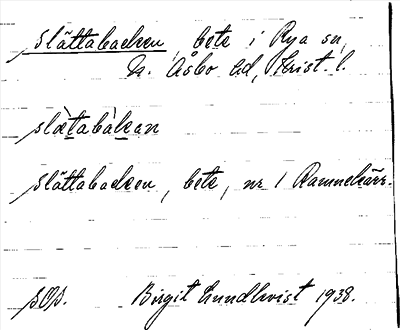 slättabacken, bete i Rya sn,
N. Åsbo hd, Krist. l.
slæ̀tabàkan
slättabacken, bete, nr 1 Ramnekärr.
Birgit Lundkvist 1938.